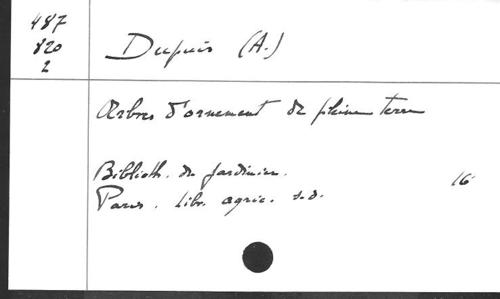 487
820
2
Dupuis (A.)
Arbres d'ornement de pleine terre
Biblioth. du jardinier.
16
Paris. Libr. agric. s.d.